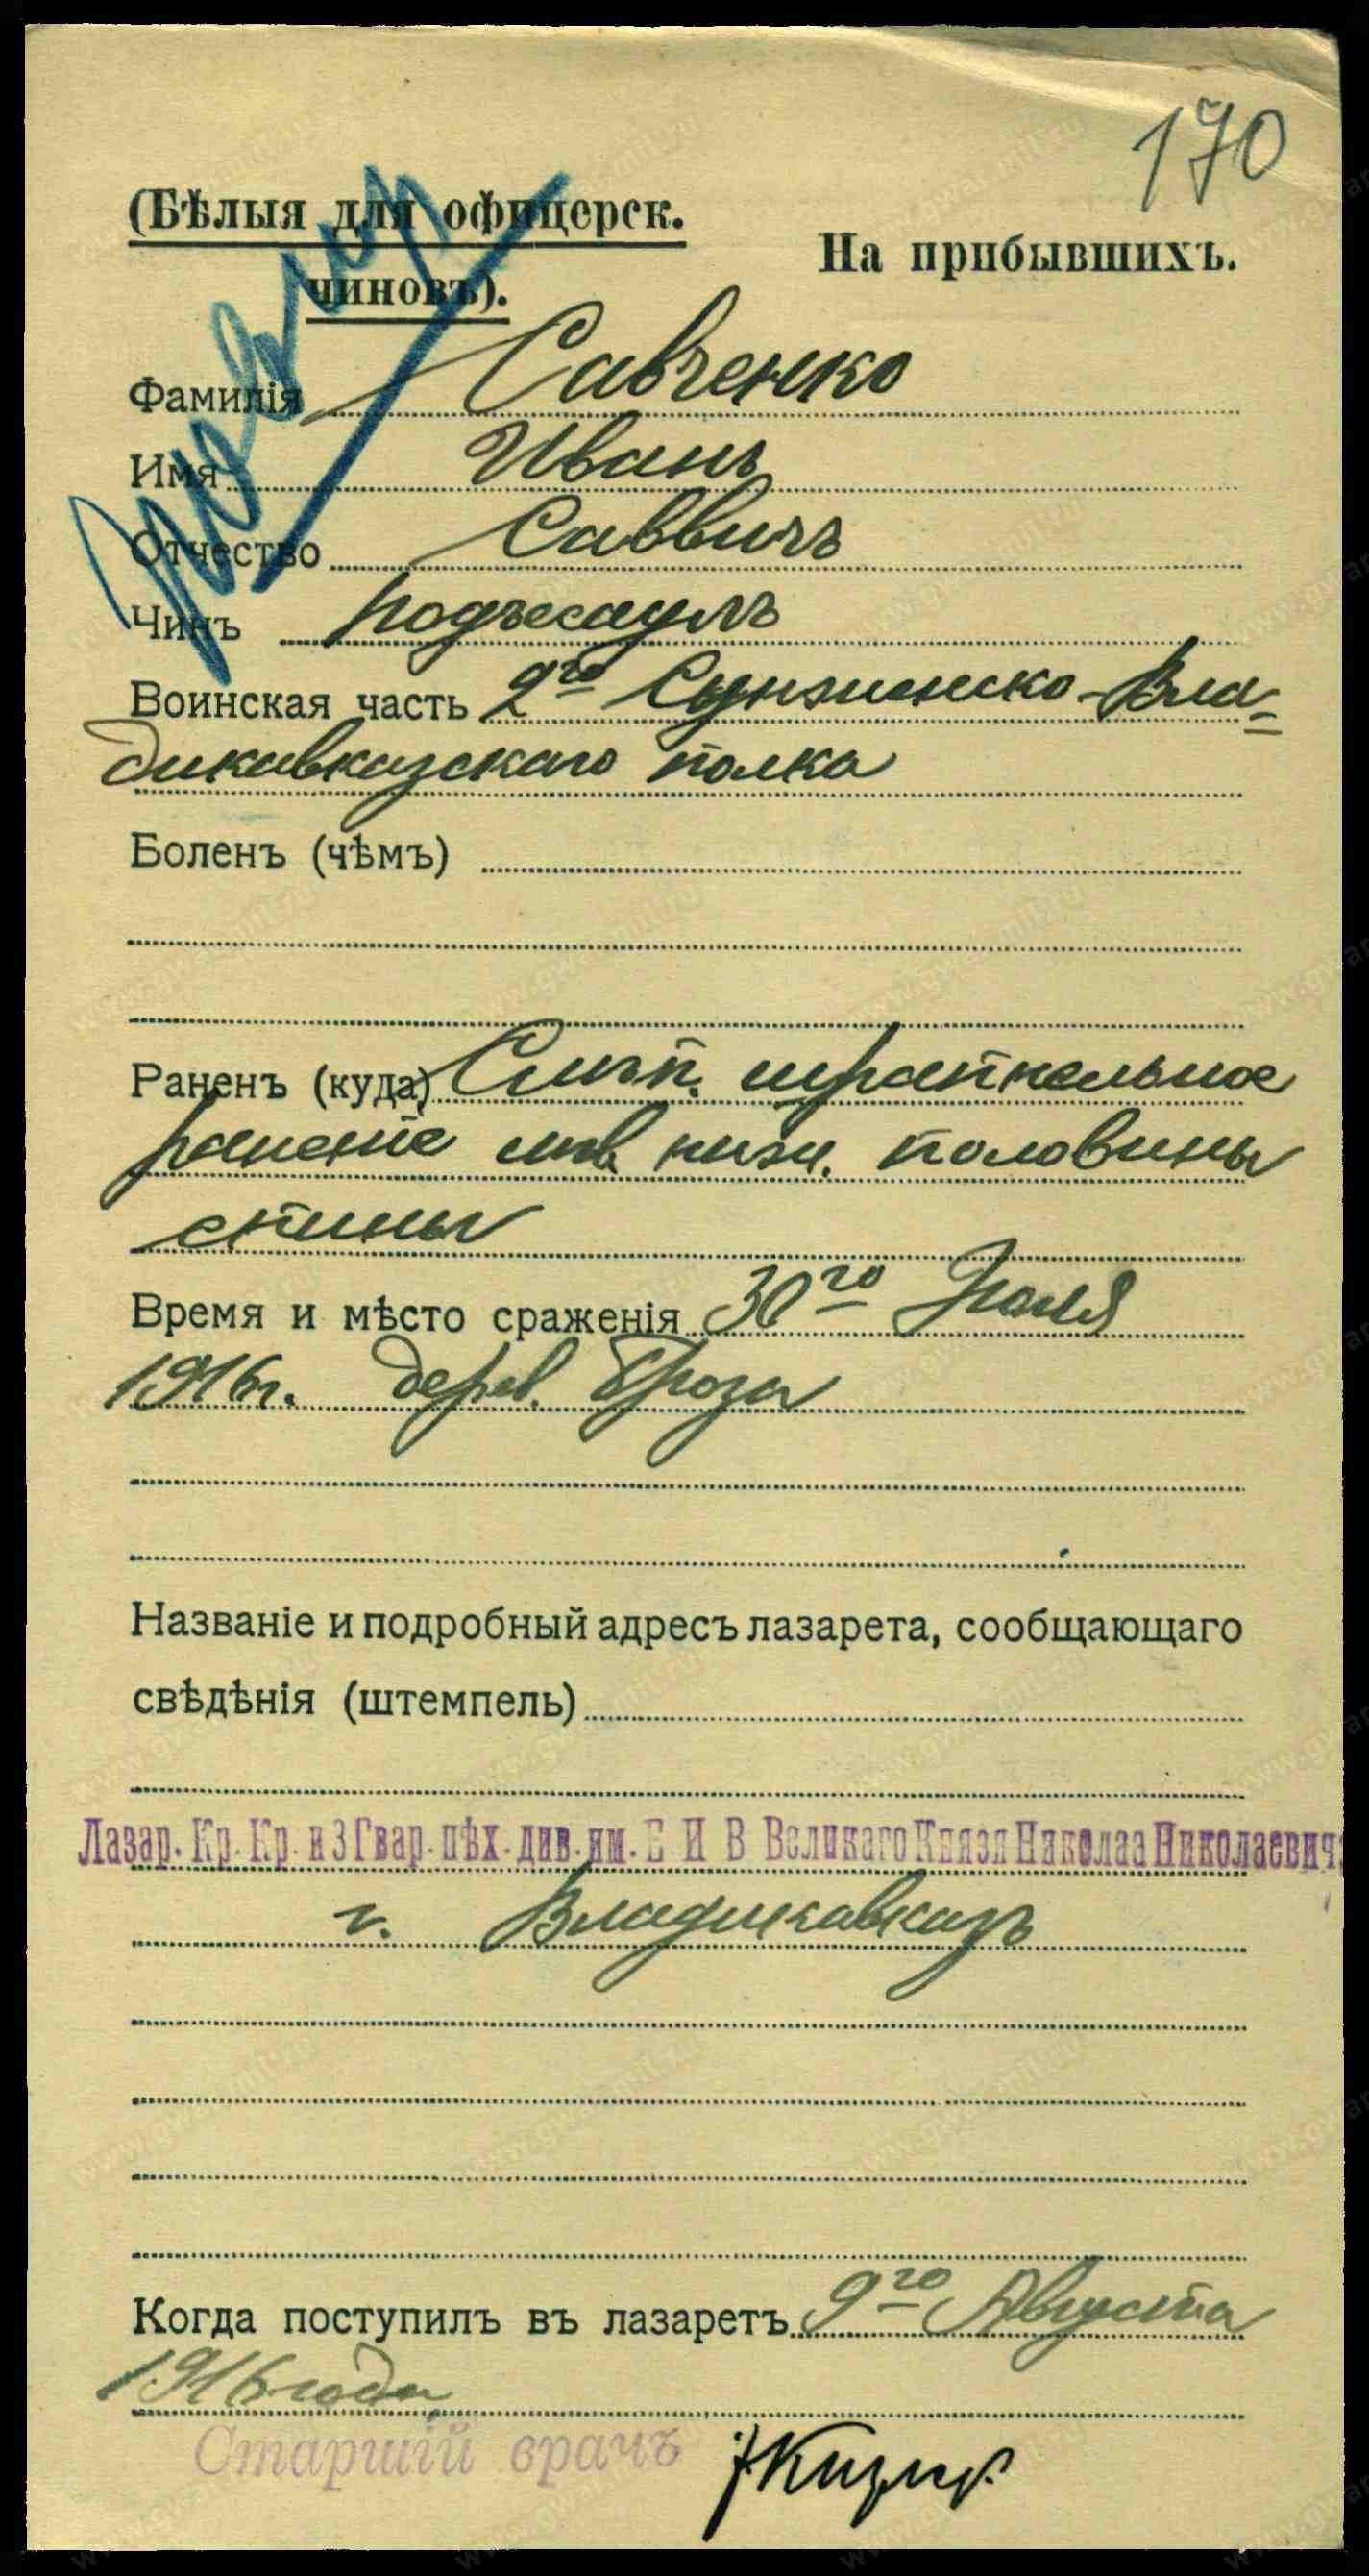 170
(Бѣлыя для офицерск.
чиновъ).
На прибывшихъ.
Фамилія Савченко
Имя Иванъ
Отчество Саввичъ
Чинъ подъесаулъ
Воинская часть 2го Сунженско-Вла-
дикавказскаго полка
Боленъ (чѣмъ)
Раненъ (куда) Слѣп. шрапнельное
раненіе лѣв. нижн. половины
спины
Время и мѣсто сраженія 30го Іюля
1916г. дерев.
Названіе и подробный адресъ лазарета, сообщающаго
свѣдѣнія (штемпель)
Лазар. Кр. Кр. и 3 Гвар. пѣх. див. им. Е И В Великаго Князя Николая Николаевича
г. Владикавказъ
Когда поступилъ въ лазаретъ 9го Августа
1916 года
Старшій врачъ